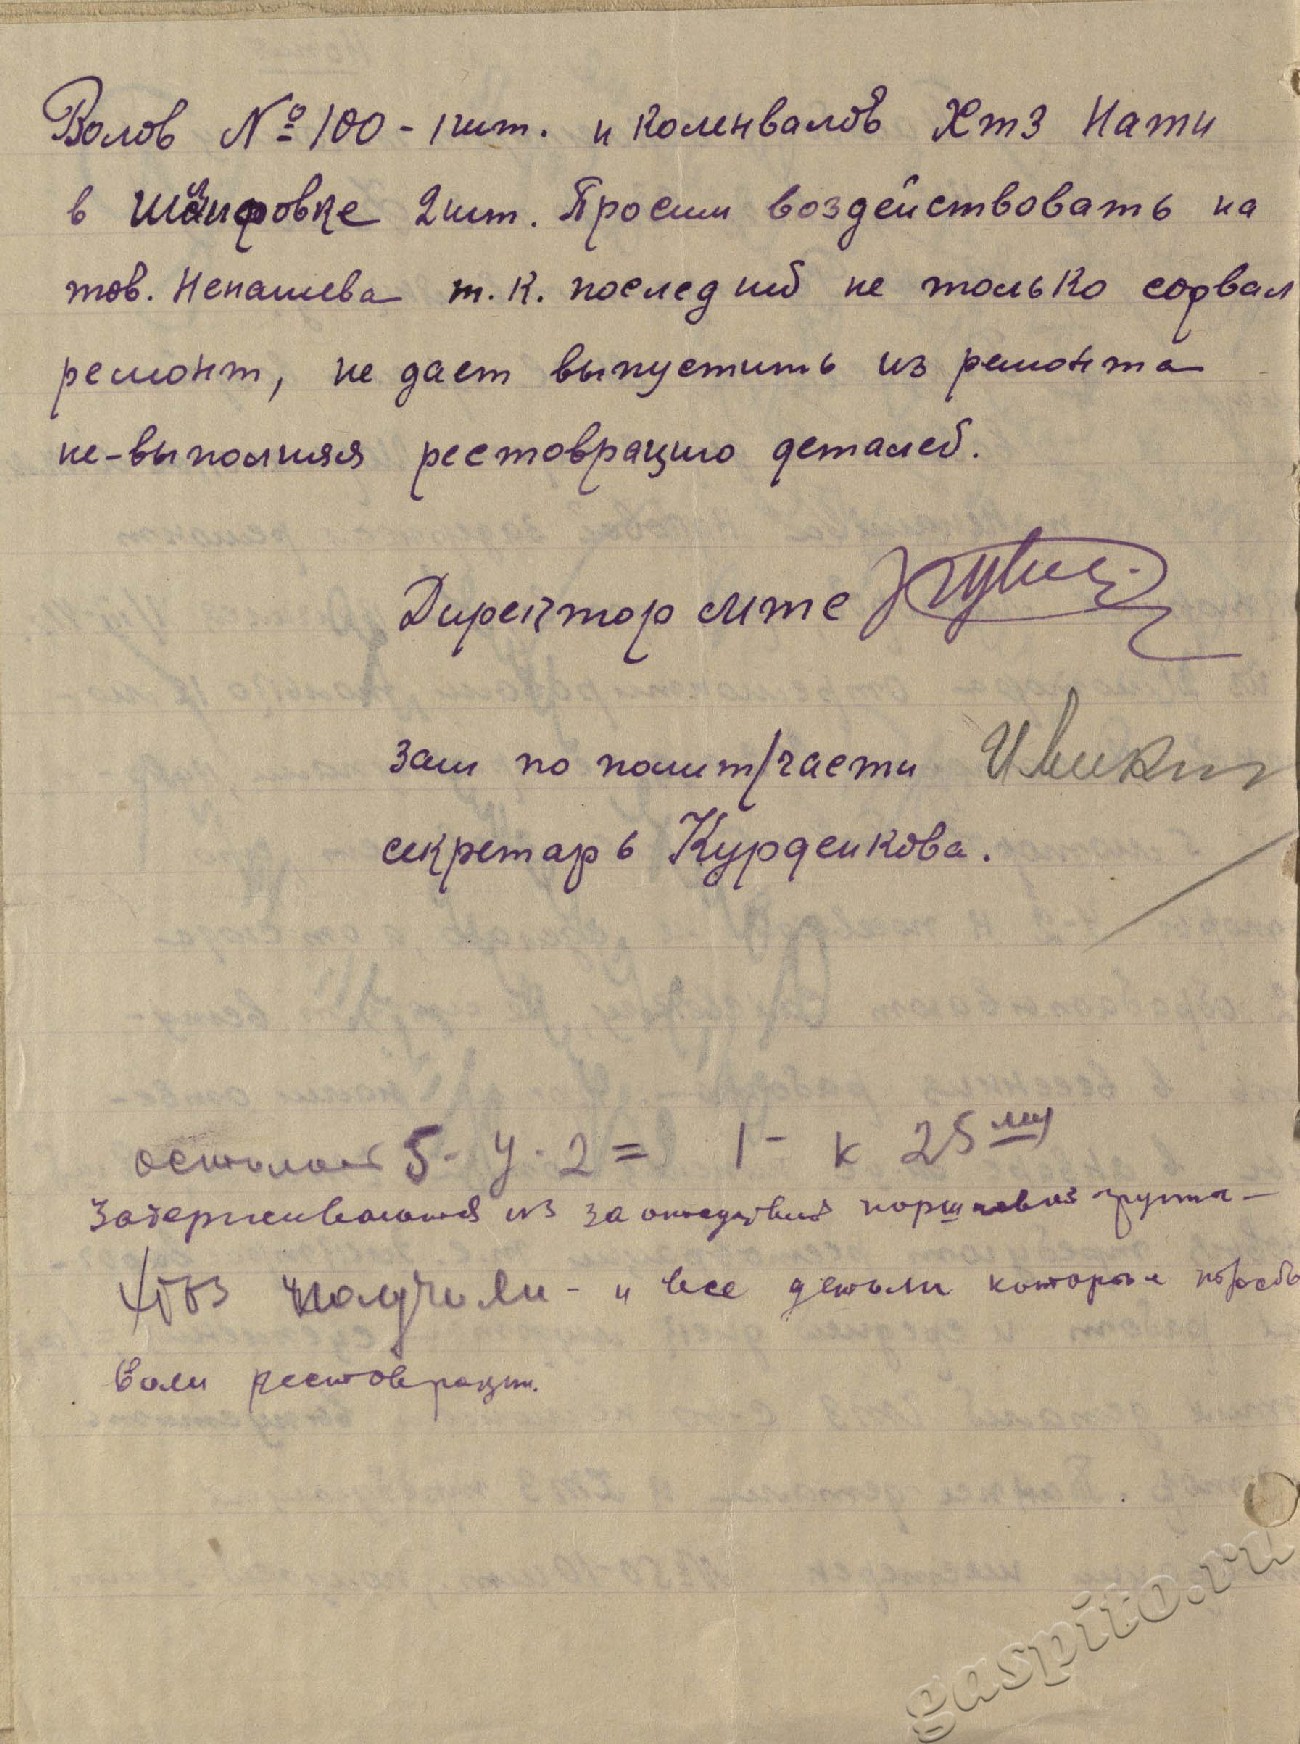 Волов № 100 - 1 шт. и коленвалов Хтз Нати
в шлифовке 2 шт. Просим воздействовать на
тов. Ненашева т.к. последний не только сорвал
ремонт, не дает выпустить из ремонта
не-выполняя рестоврацию деталей.
Директор мтс
Зам по полит/части
секретарь Курденкова.
5- У-2 = 1 - к 25
задерживаются из за отсутствия группы -
ХТЗ получили - и все детали которые
вали рестоврации.
gaspito.ru